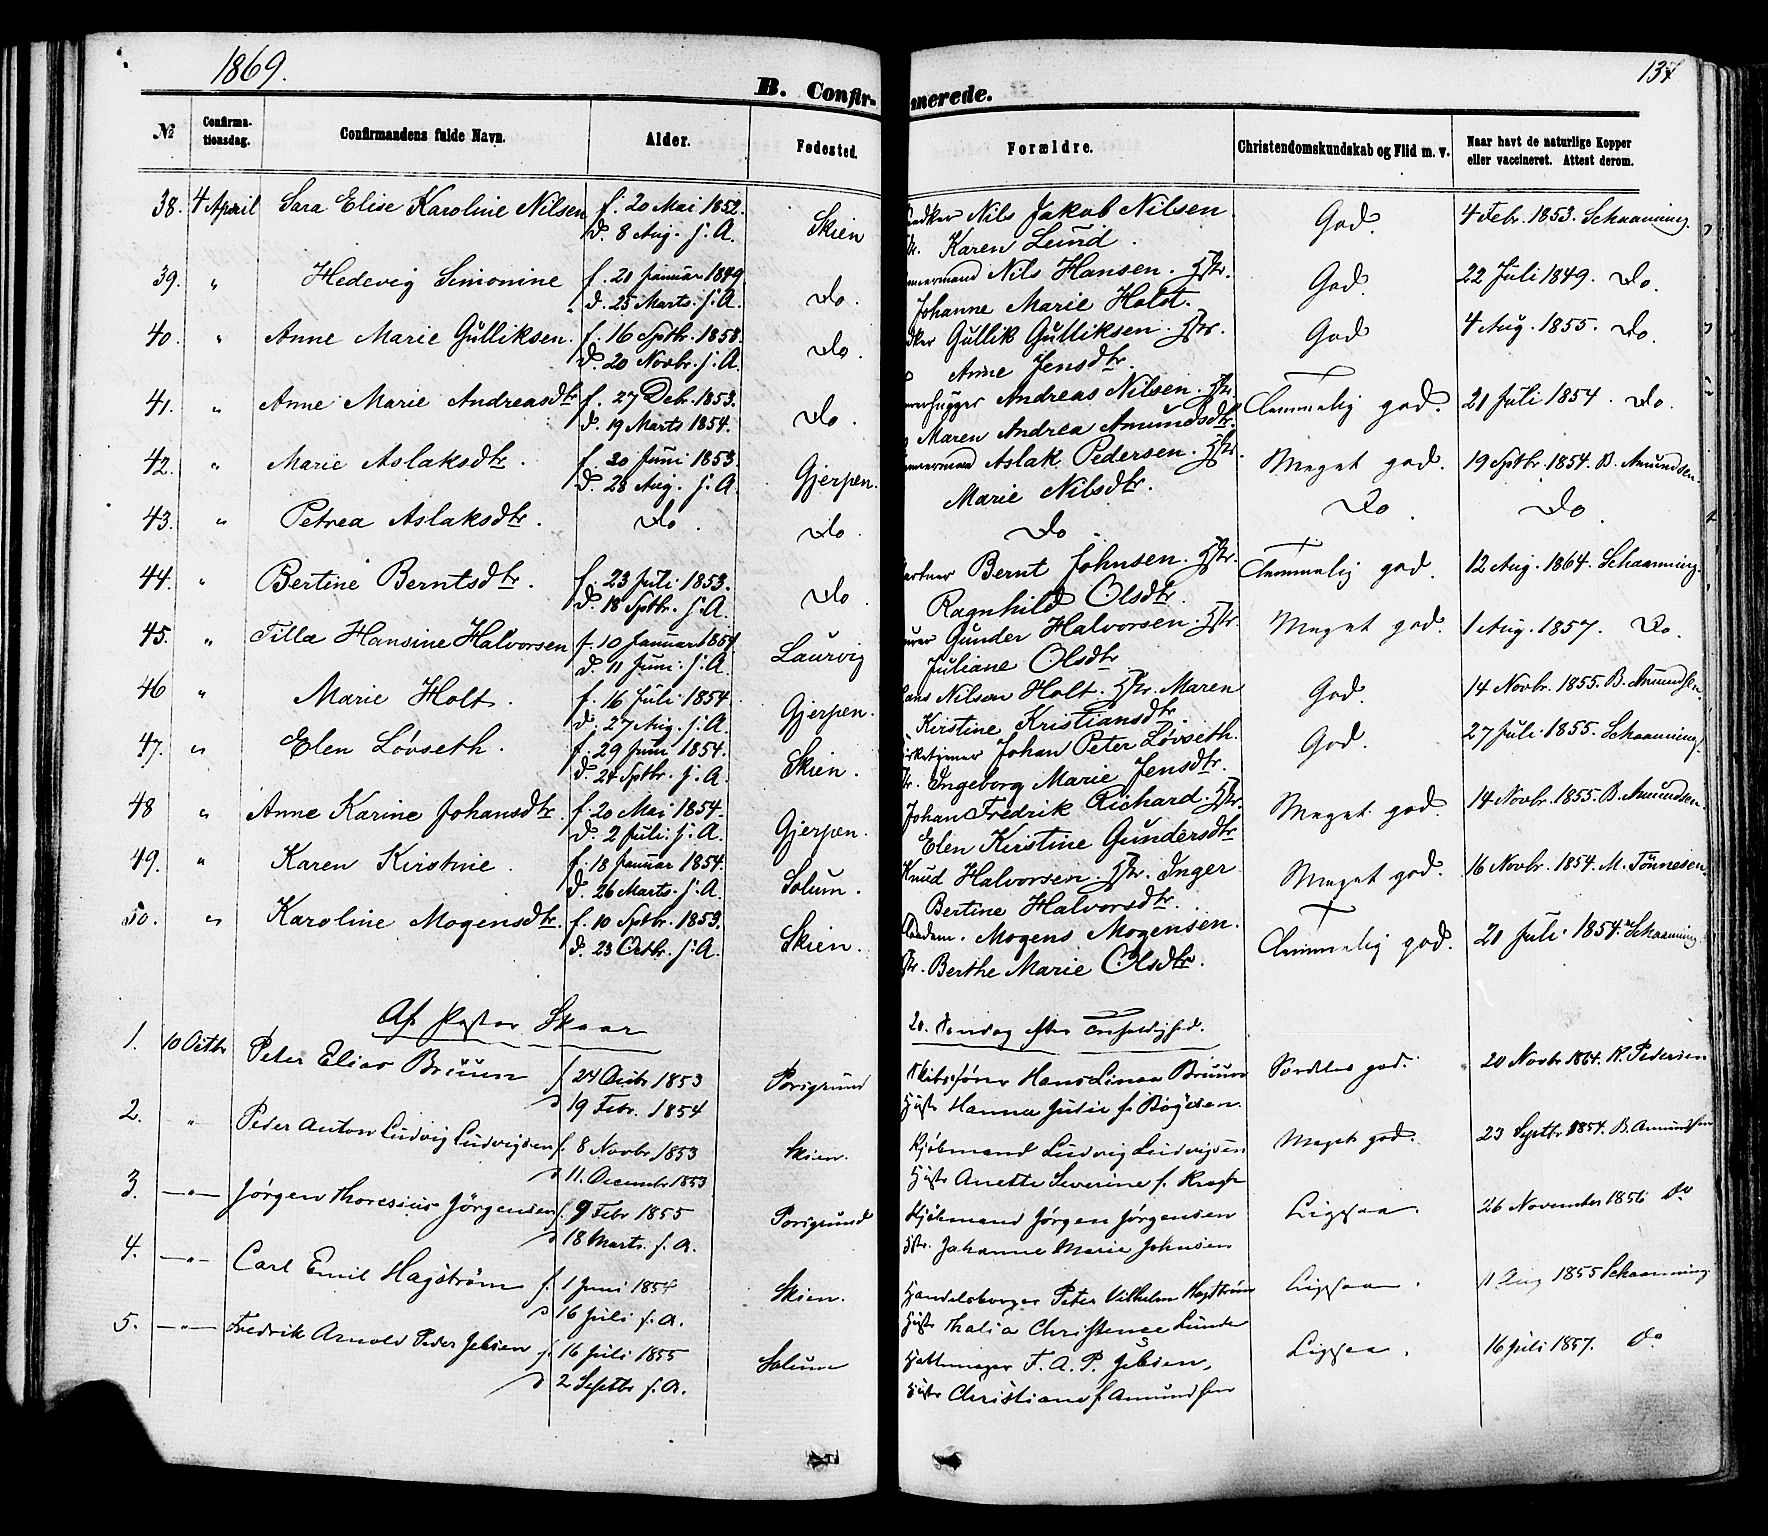 1869.
137
B. Confirmerede.
№ Confirma-tionsdag. Confirmandens fulde Navn. Alder. Fødested. Forældre. Christendomskundskab og Flid m. v. Naar havt de naturlige Kopper eller vaccineret. Attest derom.
38. 4 April Sara Elise Karoline Nilsen f. 20 Mai 1852. Skien Nils Jakob Nilsen God. 4 Febr. 1853. Schaanning.
d. 8 Aug. s. A. Karen Lund.
39. " Hedevig Simonine f. 20 Januar 1849 Do. Nils Hansen. Hstr. God. 22 Juli 1849. Do.
d. 25 Marts. s. A. Johanne Marie Holst.
40. " Anne Marie Gulliksen. f. 16 Sptbr. 1853. Do. Gullik Gulliksen. Hstr. God 4 Aug. 1855. Do.
d. 20 Novbr. s. A. Anne Jensdtr.
41. " Anne Marie Andreasdtr f. 27 Deb. 1853. Do. Andreas Nilsen. Hstr Temmelig god. 21 Juli 1854. Do.
d. 19 Marts 1854. Maren Andrea Amundsdtr.
42. " Marie Aslaksdtr. f. 20 Juni 1853. Gjerpen. Aslak Pedersen. Hstr. Meget god. 19 Sptbr. 1854. B. Amundsen.
d. 28 Aug. s. A. Marie Nilsdtr.
43. " Petrea Aslaksdtr. Do. Do. Do. Do. Do.
44. " Bertine Berntsdtr. f. 23 Juli 1853. Do. Bernt Johnsen. Hstr. Temmelig god. 12 Aug. 1864. Schaanning.
d. 18 Sptbr. s. A. Ragnhild Olsdtr.
45. " Tilla Hansine Halvorsen f. 10 Januar 1854 Laurvig Gunder Halvorsen. Hstr Meget god. 1 Aug. 1857. Do.
d. 11 Juni. s. A. Juliane Olsdtr
46 " Marie Holt. f. 16 Juli 1854. Gjerpen. Nilsen Holt. Hstr. Maren God. 14 Novbr. 1855. B. Amundsen.
d. 27 Aug. s. A. Kirstine Kristiansdtr.
47. " Elen Løvseth. f. 29 Juni 1854. Skien. Johan Peter Løvseth. God. 27 Juli 1855. Schaanning.
d. 24 Sptbr. s. A. Ingeborg Marie Jensdtr.
48 " Anne Karine Johansdtr. f. 20 Mai 1854. Gjerpen. Johan Fredrik Richard. Hstr. Meget god. 14 Novbr. 1855. B. Amundsen.
d. 2 Juli. s. A. Elen Kirstine Gundersdtr
49. " Karen Kirstine. f. 18 Januar 1854. Solum. Knud Halvorsen. Hstr. Inger Meget god. 16 Novbr. 1854. M. Tønnesen.
d. 26 Marts. s. A. Bertine Halvorsdtr.
50. " Karoline Mogensdtr. f. 10 Sptbr. 1853. Skien. Mogens Mogensen. Temmelig god. 21 Juli. 1854. Schaanning
d. 23 Octbr. s. A. Hstr. Berthe Marie Olsdtr.
Af Pastor Skaar 20. Søndag efter Trefoldighed.
1. 10 Octbr Peter Elias Bruun f 24 Octbr 1853 Porsgrund Skibsfører Hans Linaa Bruun Særdeles god. 20 Novbr 1864. K. Pedersen
d 19 Febr. 1854 Hustr Hanna Julie f. Bøyesen.
2. " Peder Anton Ludvig Ludvigsen f. 8 Novbr 1853 Skien. Kjøbmand Ludvig Ludvigsen Meget god. 23 Septbr 1854. B. Amundsen
d 11. Decembr 1853 Hustr Anette Severine f. Krogh
3. — " — Jørgen Thoresius Jørgensen f. 9 Febr 1855 Porsgrund Kjøbmand Jørgen Jørgensen Ligesaa. 26 November 1856 do
d 18 Marts. s. A. Hstr. Johanne Marie Johnsen
4. — " — Carl Emil Hagstrøm f. 1 Juni 1854 Skien. Handelsborger Peter Vilhelm Hagstrøm Ligesaa. Aug 1855 Schaanning
d 16 Juli s. A. Hustr Thalia Christence Lunde
5. — " — Fredrik Arnold Peder Jebsen f. 16 Juli 1855 Solum Hattemager F. A. P. Jebsen, Ligesaa. 16 Juli 1857. do
d 2 Septbr s. A. Hustr Christiane f. Amundsen